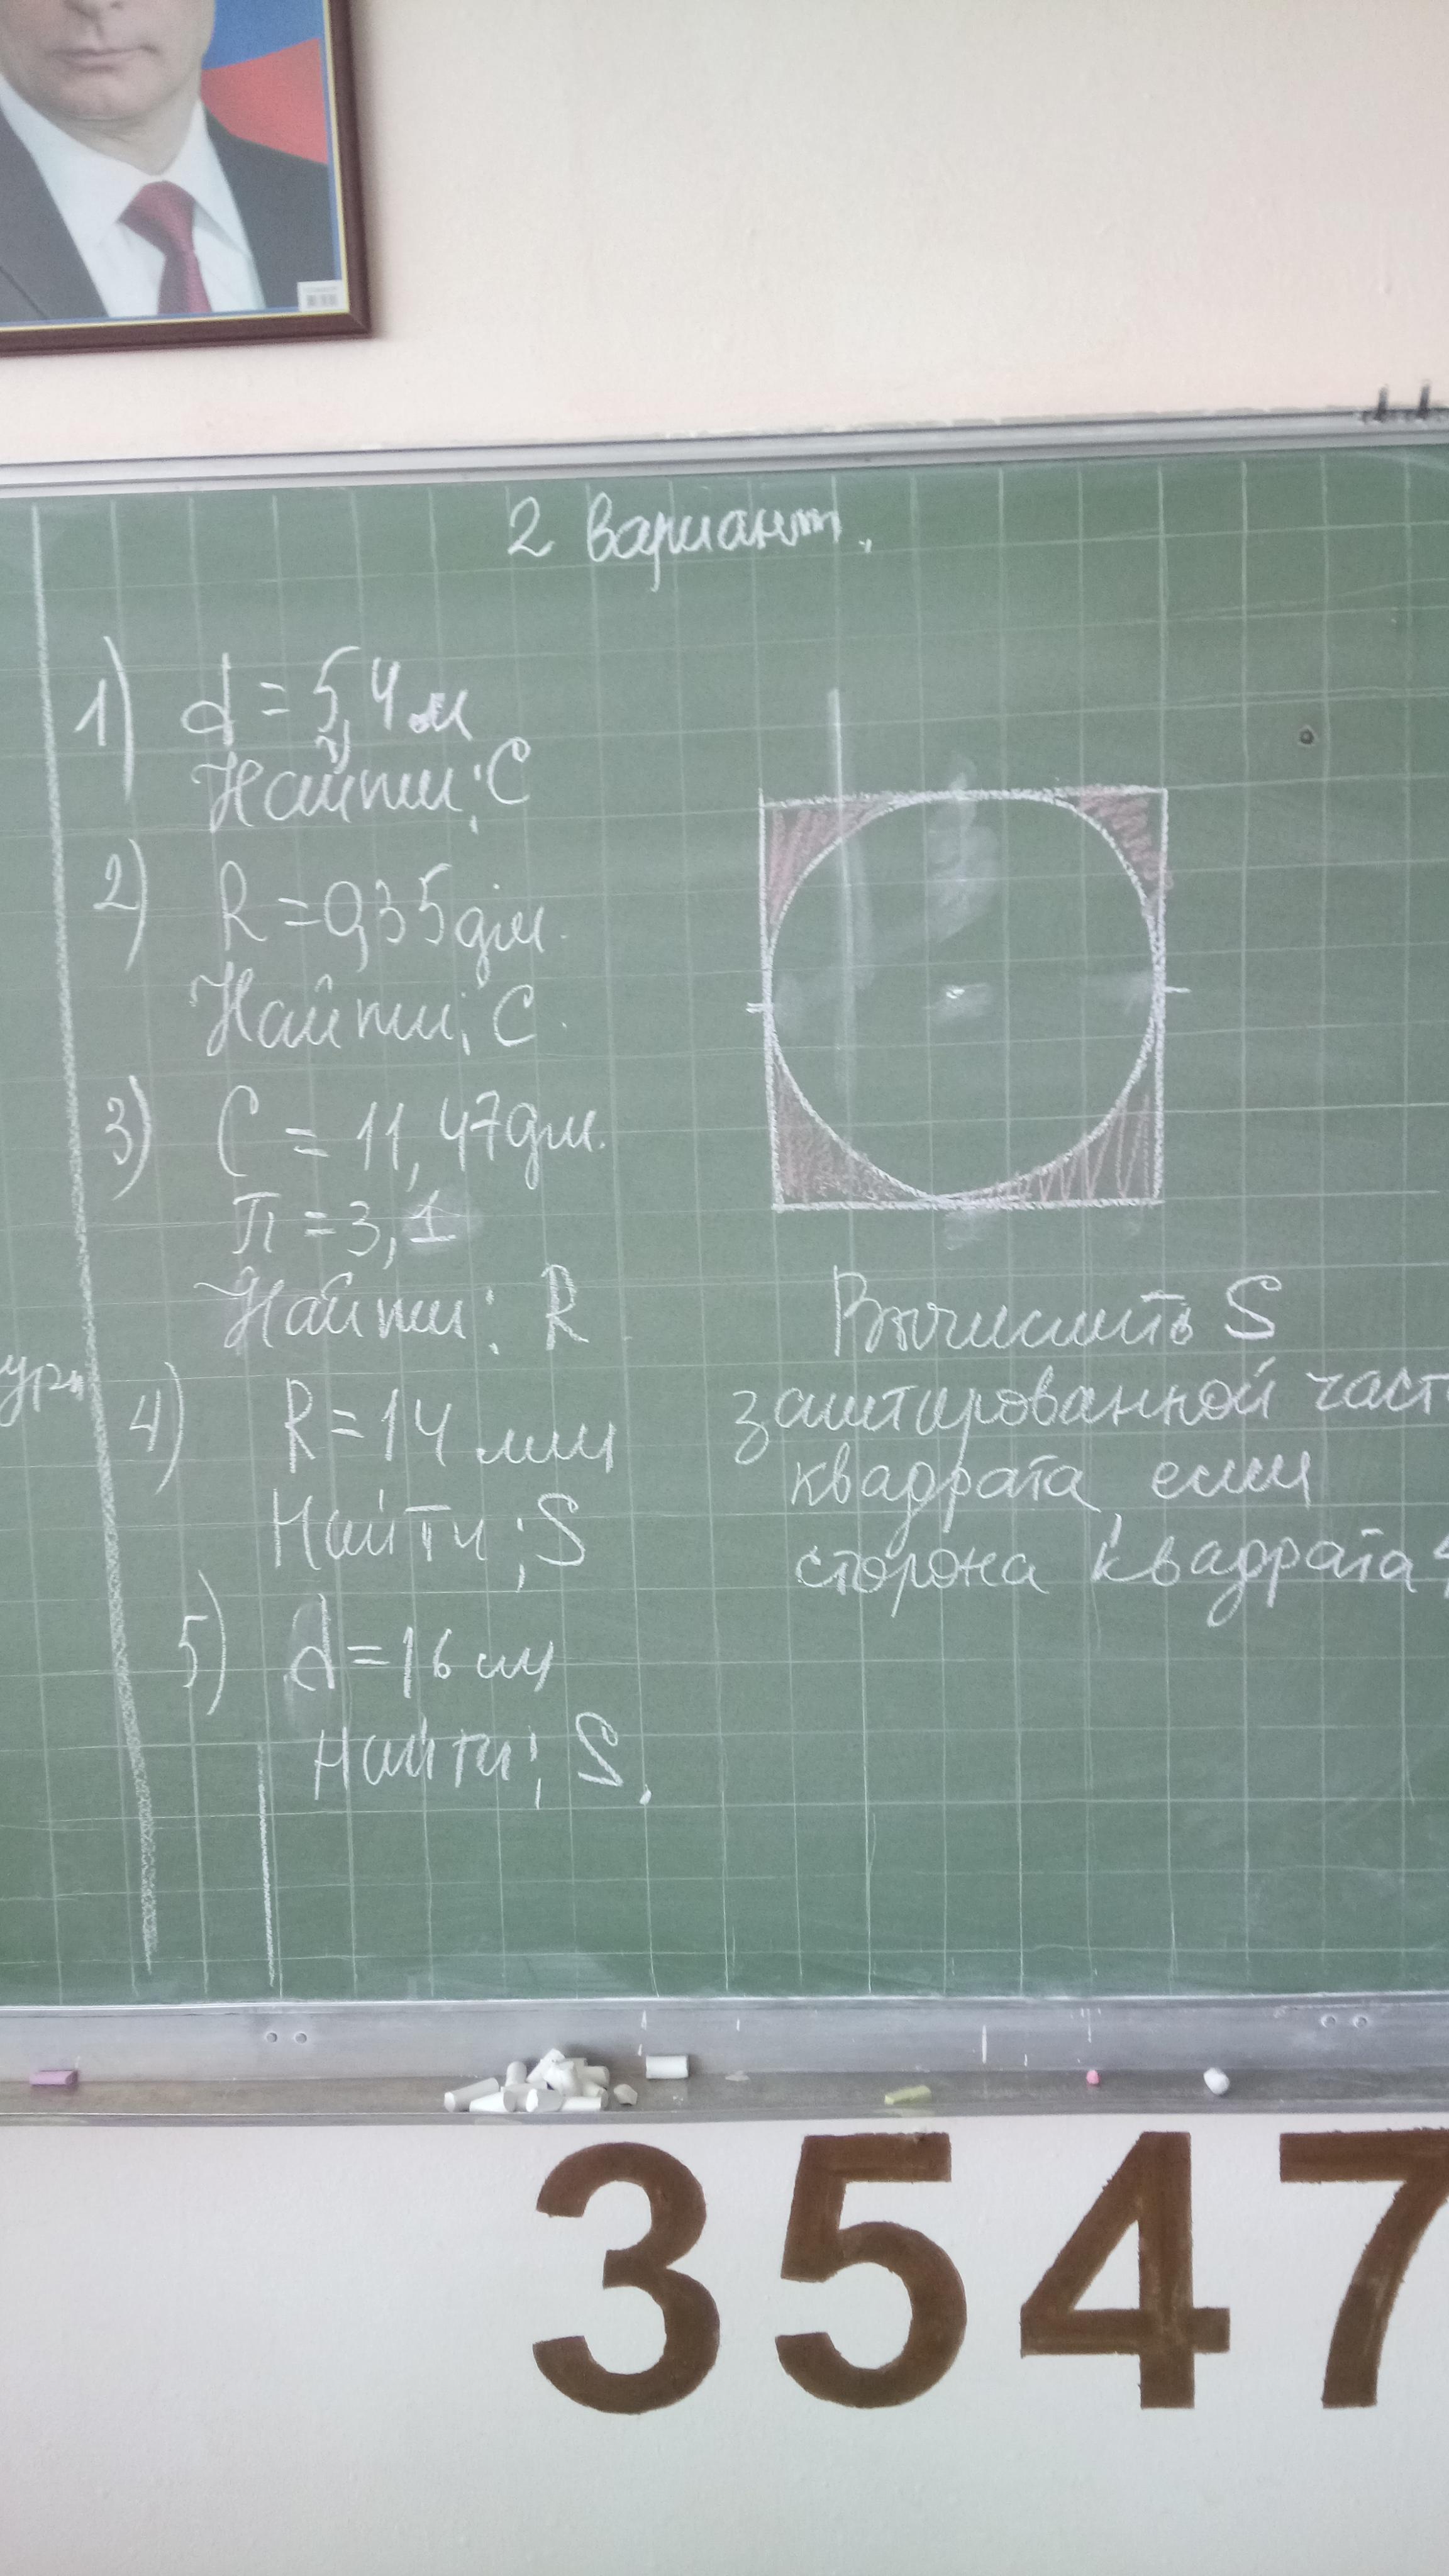 2 вариант.
1) d = 5,4 м
Найти: С
2) R = 0,35 дм.
Найти: С.
3) С = 11,47 дм.
π = 3,1
Найти: R
4) R = 14 мм
Найти: S
5) d = 16 см
Найти: S.
Вычислить S
заштированной част
квадрата если
сторона квадрата
ур.
3547